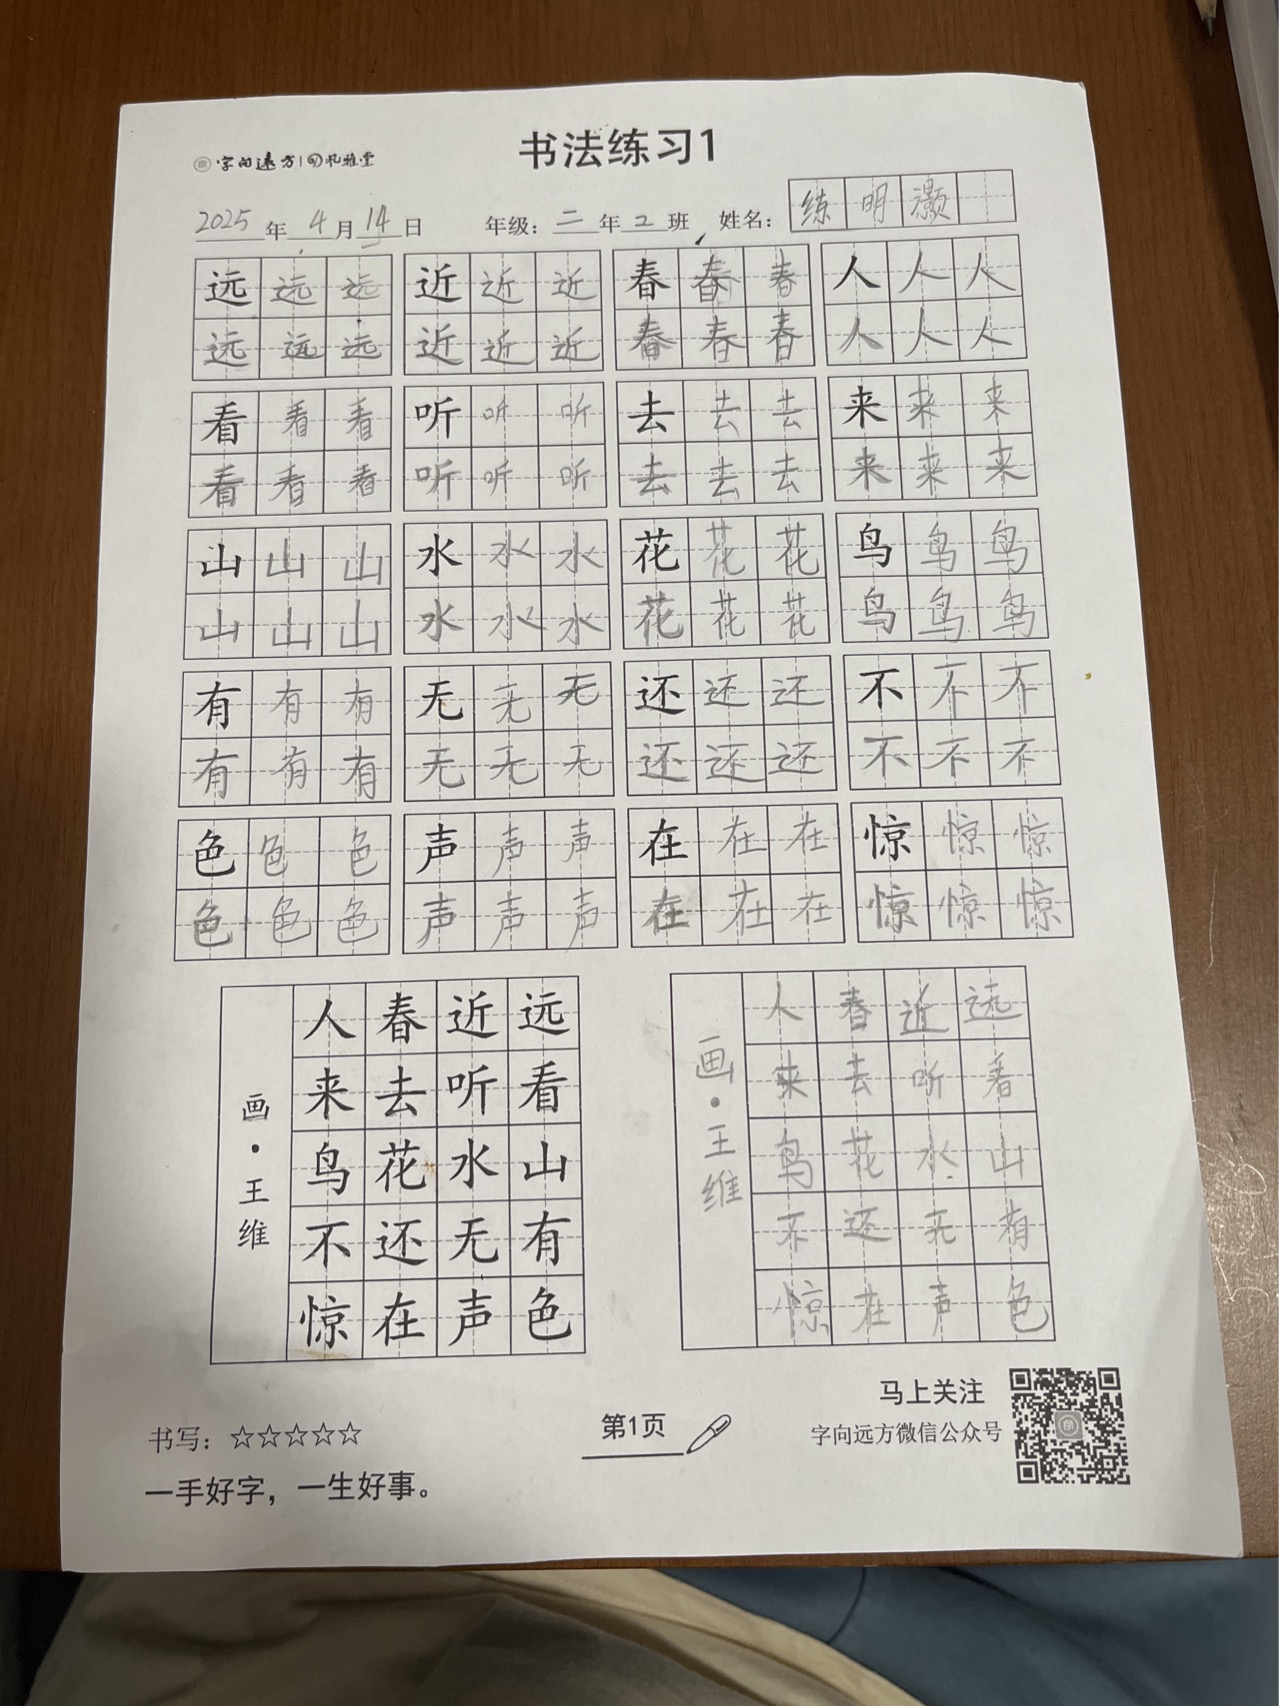 字向远方 风雅堂
书法练习1
2025年4月14日 年级：二年二班 姓名：练明灏
远远远 近近近 春春春 人人人
远远远 近近近 春春春 人人人
看看看 听听听 去去去 来来来
看看看 听听听 去去去 来来来
山山山 水水水 花花花 鸟鸟鸟
山山山 水水水 花花花 鸟鸟鸟
有有有 无无无 还还还 不不不
有有有 无无无 还还还 不不不
色色色 声声声 在在在 惊惊惊
色色色 声声声 在在在 惊惊惊
远看山有色
近听水无声
春去花还在
人来鸟不惊
画·王维
远看山有色
近听水无声
春去花还在
人来鸟不惊
画·王维
书写：☆☆☆☆☆
一手好字，一生好事。
第1页
马上关注
字向远方微信公众号